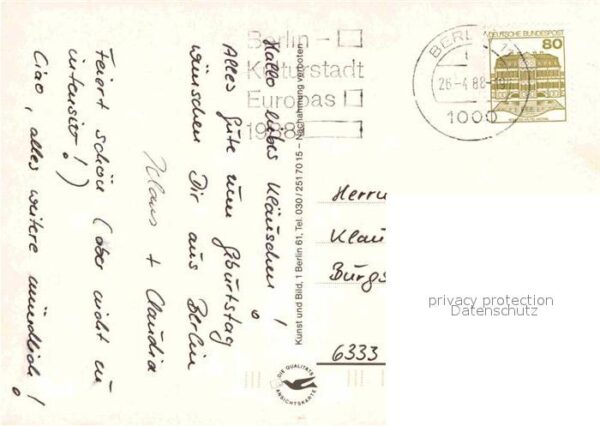 Hallo liebes Kläuschen!
Alles gute zum Geburtstag
wünschen Dir aus Berlin
Klaus + Claudia
Feiert schön (aber nicht zu
intensiv!)
Ciao, alles weitere mündlich!
Berlin -
Kulturstadt
Europas
1988
BERLIN 12
26-4.88
1000
DEUTSCHE BUNDESPOST
80
Kunst und Bild, 1 Berlin 61, Tel. 030/2517015 – Nachahmung verboten
Herrn
Klau
Burgs
6333
DIE QUALITÄTS
ANSICHTSKARTE
privacy protection
Datenschutz